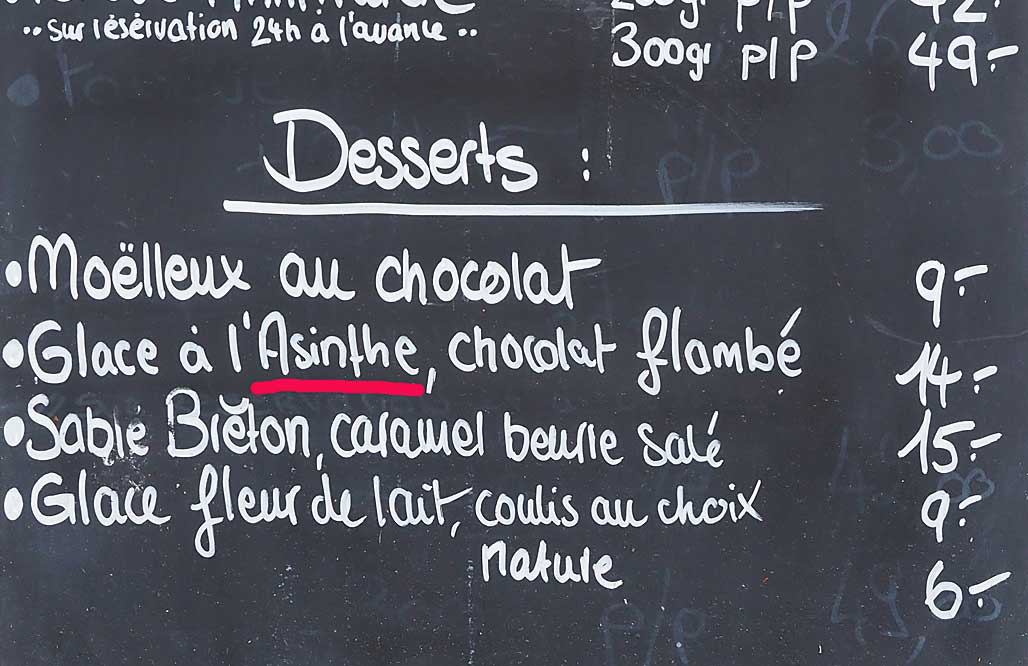 200gr p/p 42.-
..sur résérvation 24h à l'avance..
300gr p/p 49.-
Desserts :
•Moëlleux au chocolat 9.-
•Glace à l'Asinthe, chocolat flambé 14.-
•Sablé Brĕton, caramel beurre salé 15.-
•Glace fleur de lait, coulis au choix 9.-
nature 6.-